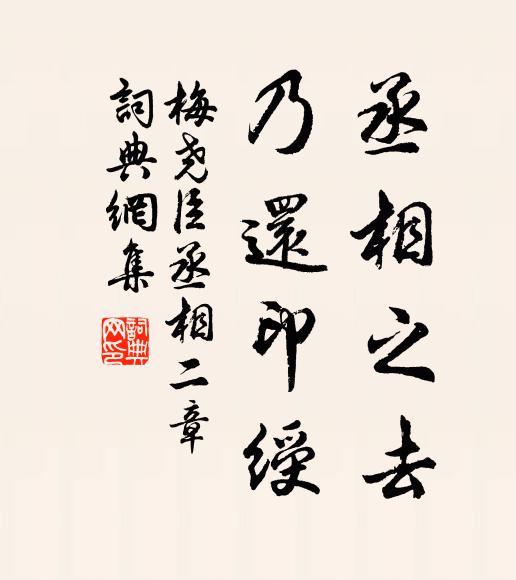 丞相之去
乃還印綬
梅尧臣丞相二章
詞典網集
詞典网印